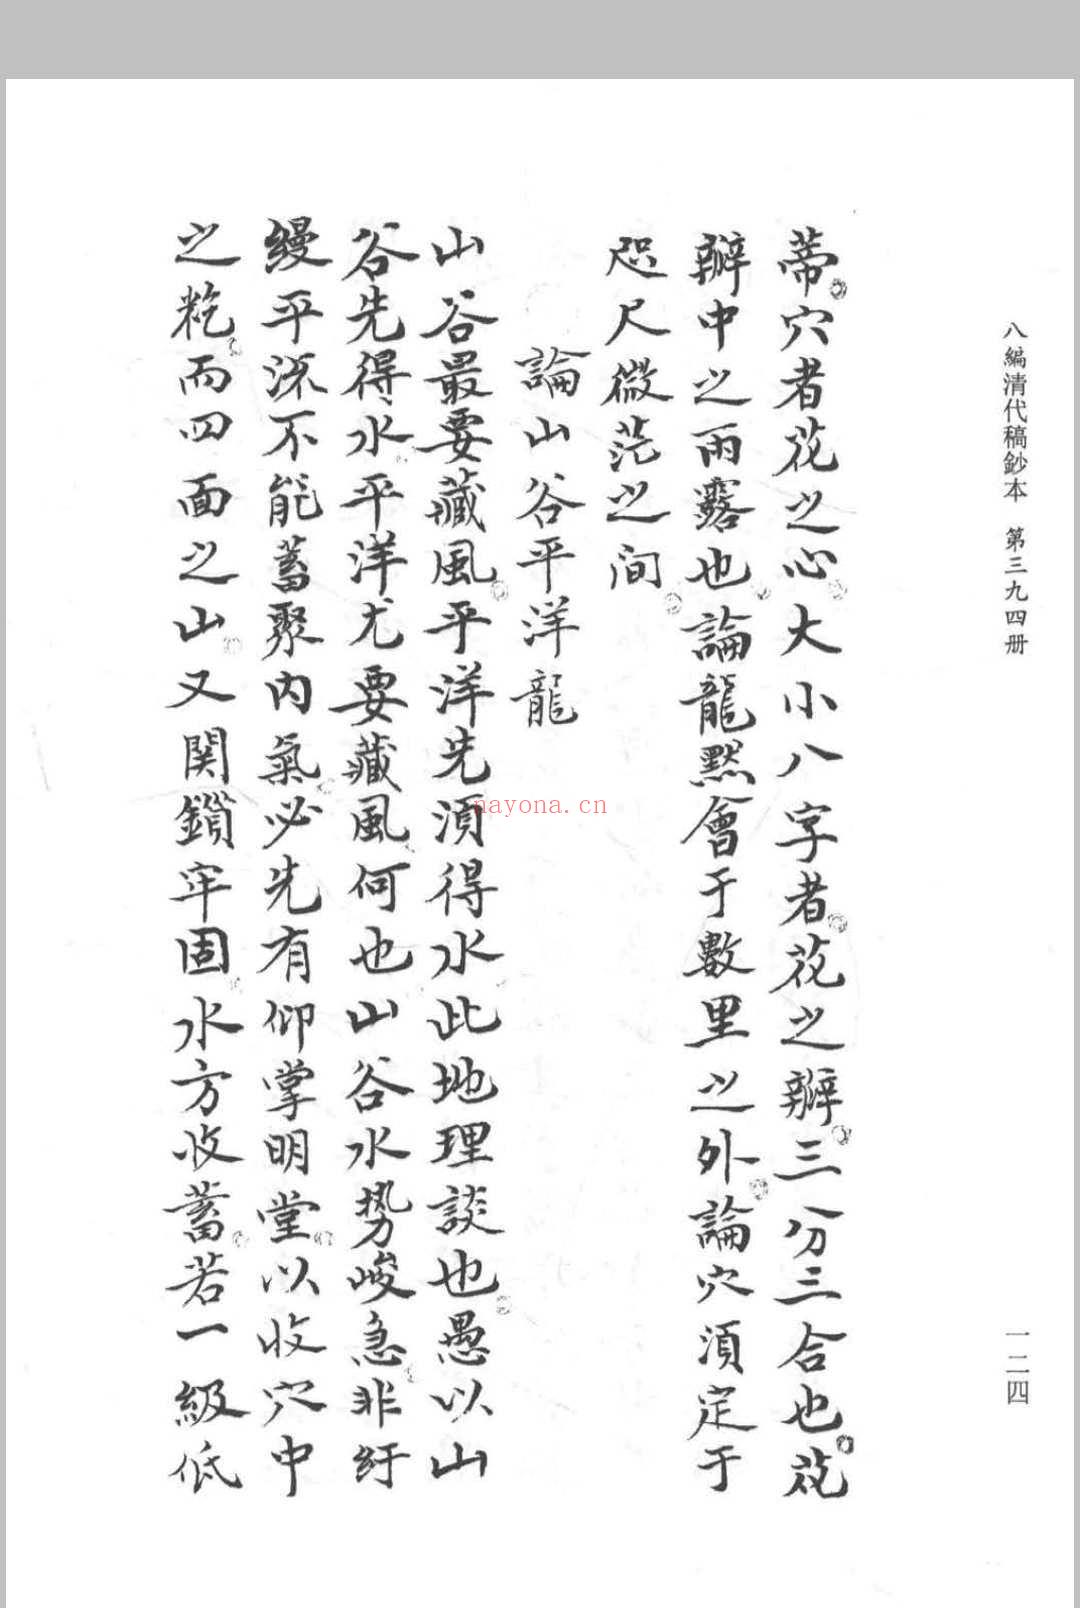 八編清代稿鈔本 第三九四册
一二四
蒂穴者花之心大小八字者花之瓣三分三合也花
瓣中之雨露也論龍黙會于數里之外論穴須定于
咫尺微茫之间
論山谷平洋龍
山谷最要藏風平洋先須得水此地理談也愚以山
谷先得水平洋尤要藏風何也山谷水势峻急非紆
缦平流不能蓄聚内氣必先有仰掌明堂以收穴中
之乾而四面之山又関鎖牢固水方收蓄若一級低
nayona.cn